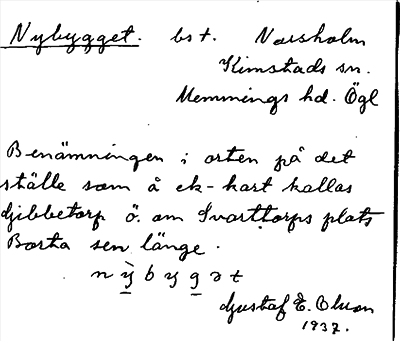 Nybygget. bst. Norsholm
Kimstads sn.
Memmings hd. Ögl
Benämningen i orten på det
ställe som å ek-kart kallas
Gibbetorp ö. om Svarttorps plats
Borta sen länge.
n ỳ b y g ə t
Gustaf E. Olson
1937.